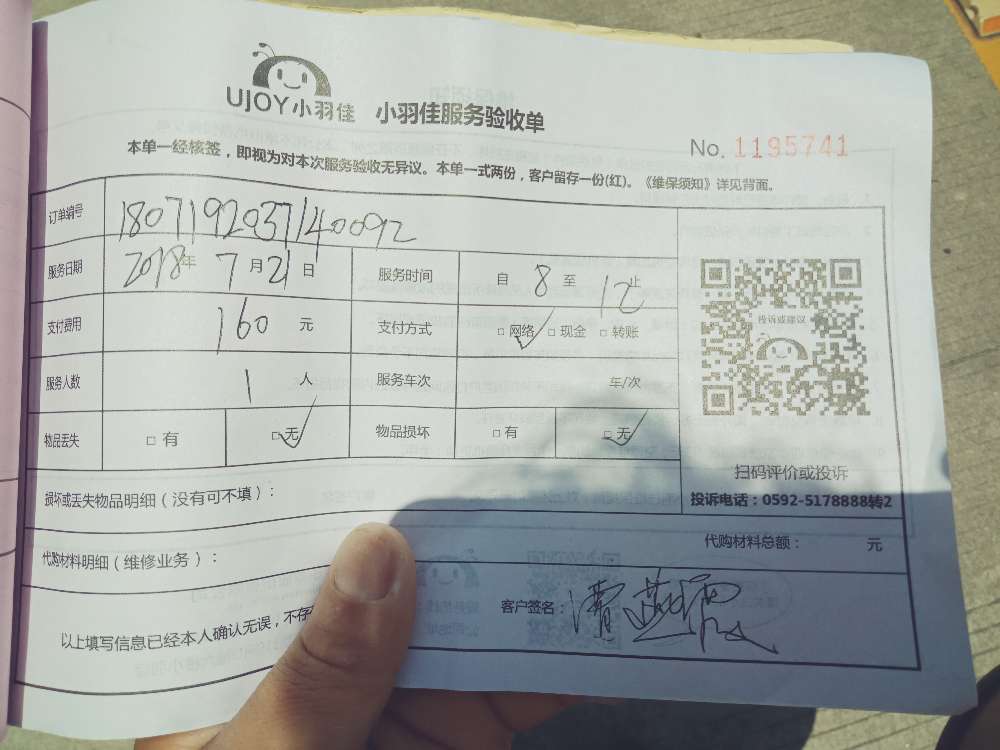 UJOY小羽佳 小羽佳服务验收单
No. 1195741
本单一经核签，即视为对本次服务验收无异议。本单一式两份，客户留存一份(红)。《维保须知》详见背面。
订单编号 1807192037140092
服务日期 2018年 7月21日 服务时间 自 8 至 12 止
支付费用 160 元 支付方式 □网络 □现金 □转账
投诉或建议
服务人数 1 人 服务车次 年/次
物品丢失 □有 □无 物品损坏 □有 □无
扫码评价或投诉
投诉电话：0592-5178888转2
损坏或丢失物品明细（没有可不填）：
代购材料明细（维修业务）： 代购材料总额： 元
以上填写信息已经本人确认无误，不存
客户签名：